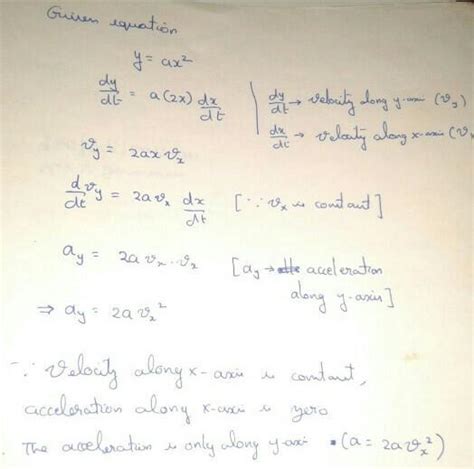 Given equation
y = ax²
dy/dt = a(2x) dx/dt | dy/dt → velocity along y-axis (vₓ)
dx/dt → velocity along x-axis (vₓ
v_y = 2ax vₓ
d/dt v_y = 2a vₓ dx/dt [∵ vₓ is constant]
a_y = 2a vₓ · vₓ [a_y → acceleration
along y-axis]
⇒ a_y = 2a vₓ²
∵ Velocity along x-axis is constant,
acceleration along x-axis is zero
The acceleration is only along y-axis · (a = 2avₓ²)